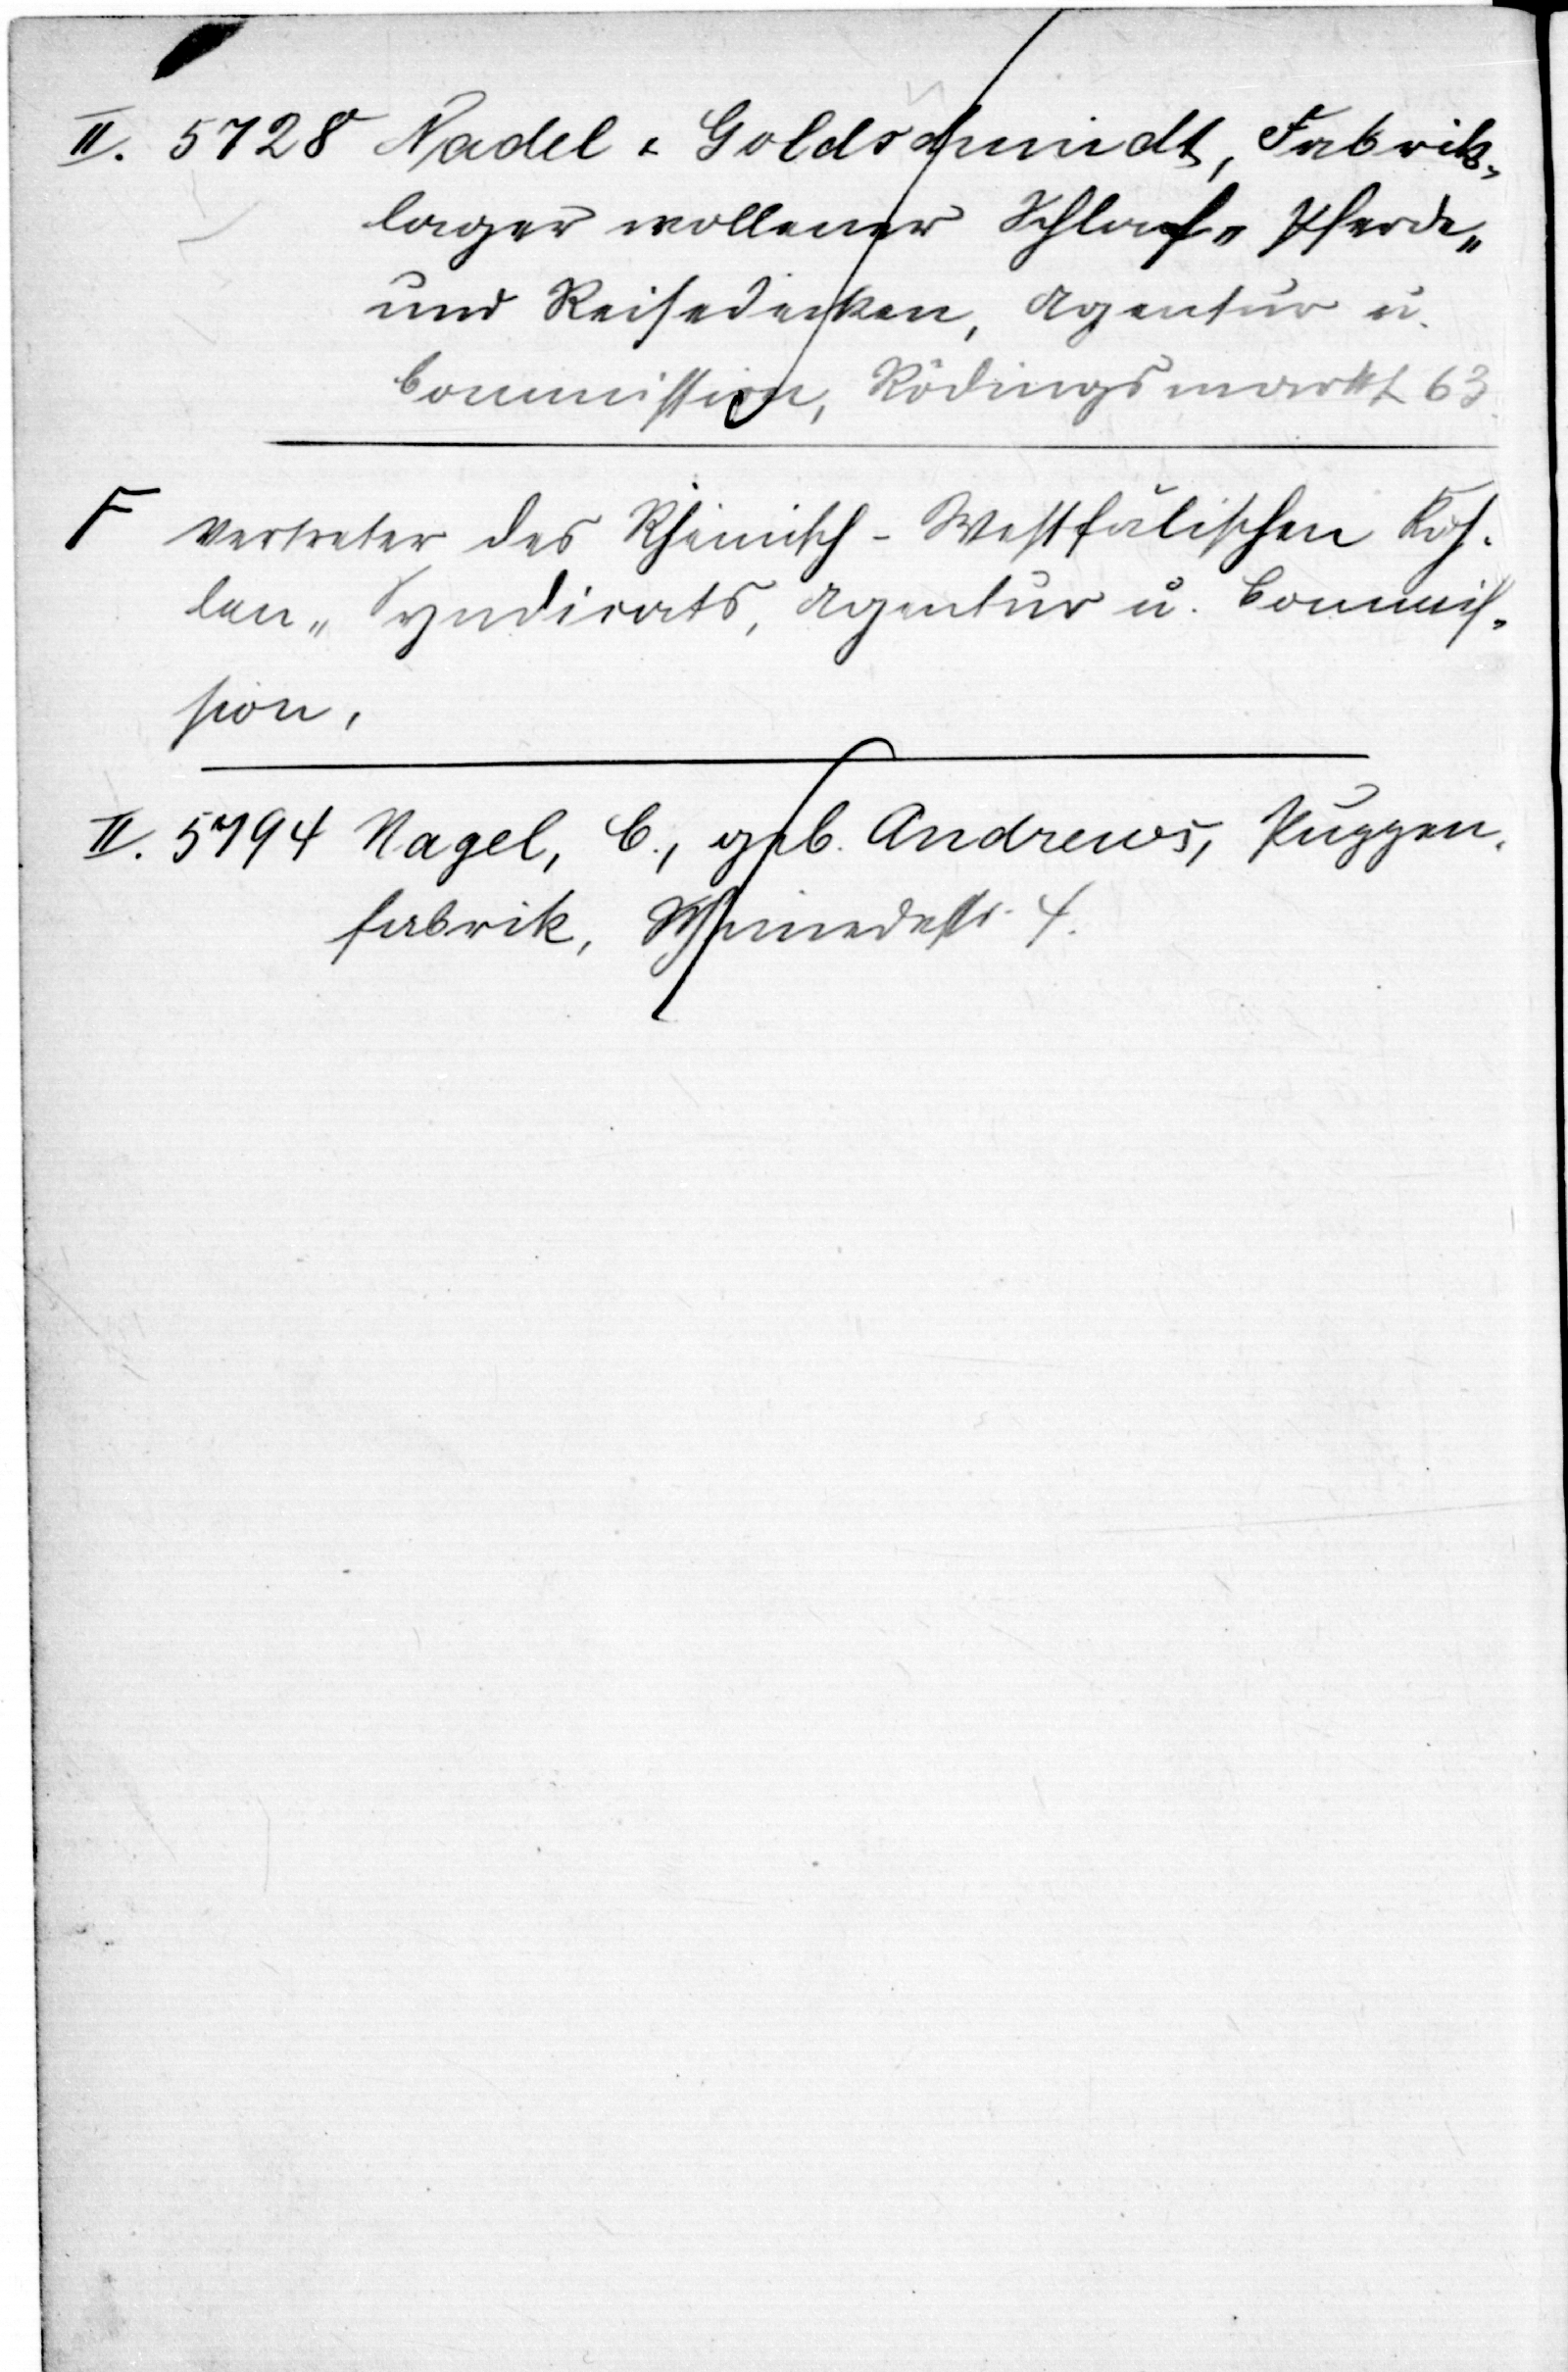 II. 5728 Nadel & Goldschmidt, Fabrik-
lager wollener Schlaf- Pferde-
und Reisedecken, Agentur u.
Commission, Rödingsmarkt 63.
F Vertreter des Rheinisch-Westfälischen Koh-
len- Syndicats, Agentur u. Commis-
sion,
II. 5794 Nagel, C., geb. Andrews, Puppen-
fabrik, 4.